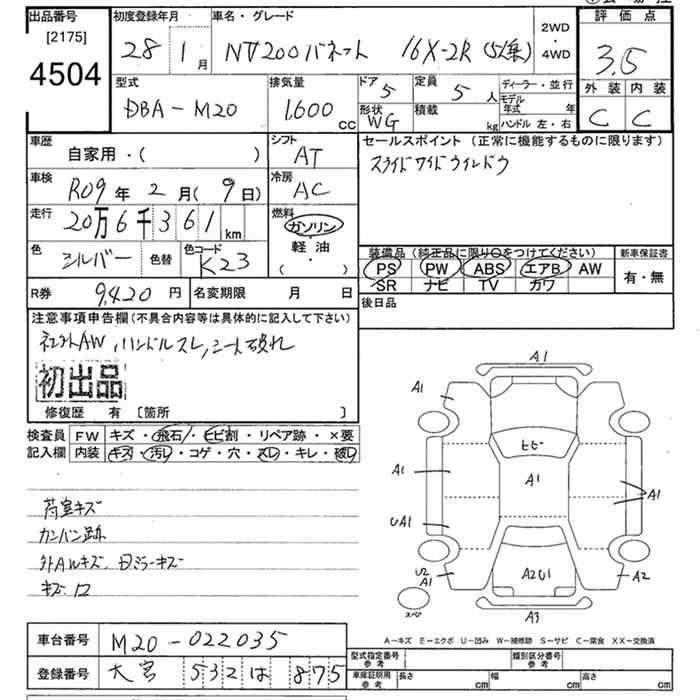 出品番号 [2175] 4504
初度登録年月 28年 1月
車名・グレード NV200バネット 16X-2R (5人乗)
2WD・4WD
評価点 3.5
外装 内装
C C
型式 DBA-M20
排気量 1,600 cc
ドア 5
形状 WG
定員 5 人
積載 kg
ディーラー・並行
モデル年式 年
ハンドル 左・右
車歴 自家用・( )
シフト AT
セールスポイント (正常に機能するものに限ります)
スライドワイドウインドウ
車検 R09年 2月(9日)
冷房 AC
走行 20万6千361 km
燃料 ガソリン・軽油・( )
色 シルバー 色替
色コード K23
装備品 (純正品に限り○をつけてください)
PS PW ABS エアB AW
SR ナビ TV カワ
新車保証書 有・無
R券 9,420円
名変期限 月 日
後日品
注意事項申告欄 (不具合内容等は具体的に記入して下さい)
社外AW,ハンドルスレ,シート破れ
初出品
修復歴 有 [箇所 ]
検査員記入欄
FW キズ・飛石・ヒビ割・リペア跡・×要
内装 キズ・汚レ・コゲ・穴・スレ・キレ・破レ
荷室キズ
カンバン跡
外AWキズ、
キズ・凹
A1
A1
ヒビ
A1
A1
A1
UA1
U2
A1
A2U1
A2
スペア
A3
A-キズ E-エクボ U-凹み W-補修跡 S-サビ C-腐食 XX-交換済
車台番号 M20-022035
登録番号 大宮 532 は 875
型式指定番号 参考
類別区分番号 参考
車庫証明用 参考 長さ cm 幅 cm 高さ cm